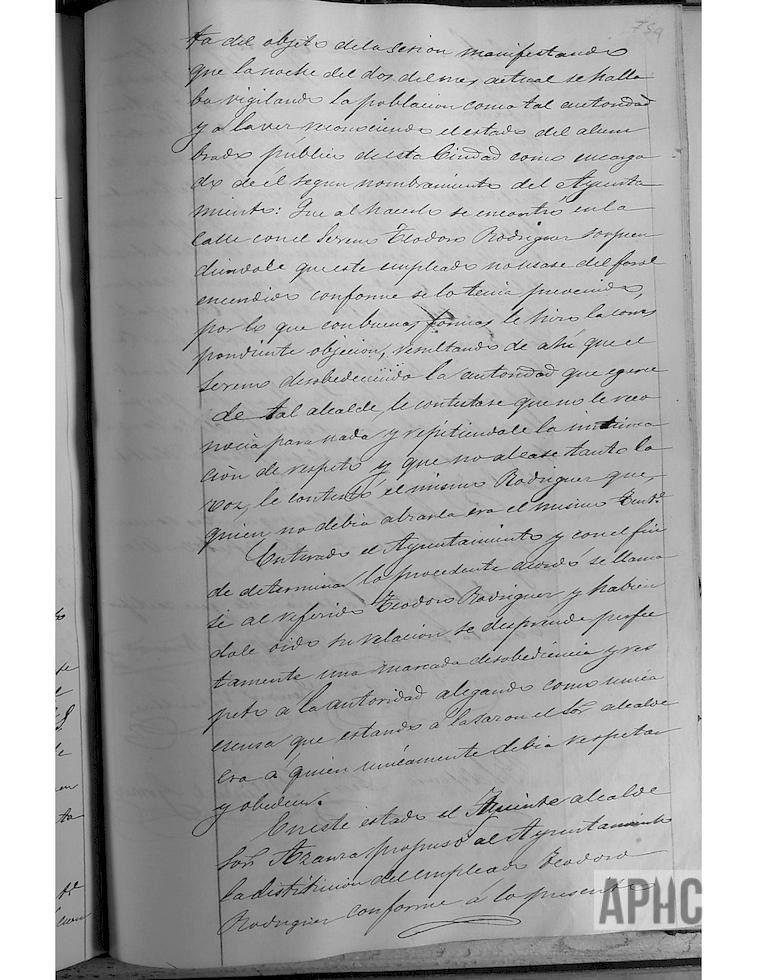 759
ta del objeto de la sesion manifestando
que la noche del dos del mes actual se halla
ba vigilando la poblacion como tal autoridad
y a la vez reconociendo el estado del alum
brado público de esta Ciudad como encarga
do de él segun nombramiento del Ayunta
miento: Que al hacerlo se encontró en la
calle con el Sereno Teodoro Rodriguez sorpren
diendole que este empleado no usase del farol
encendido conforme se lo tenia prevenido,
por lo que con buenas formas le hizo la corres
pondiente objecion, resultando de ahi que el
Sereno desobedeciendo la autoridad que egerce
de tal alcalde, le contestase que no le reco
nocia para nada y repitiendole la intima
cion de respeto y que no alzase tanto la
voz, le contestó el mismo Rodriguez que,
quien no debia alzarla era el mismo Tente.
Enterado el Ayuntamiento y con el fin
de determinar lo procedente acordó se llama
se al referido Teodoro Rodriguez y habien
dole oido su relacion se desprende perfec
tamente una marcada desobediencia y res
peto a la autoridad alegando como unica
escusa que estando a la sazon el Sor. alcalde
era á quien unicamente debia respetar
y obedecer.
En este estado el Teniente alcalde
Sor. Azanza propuso al Ayuntamiento
la distitucion del empleado Teodoro
Rodriguez conforme á lo presente
APHC